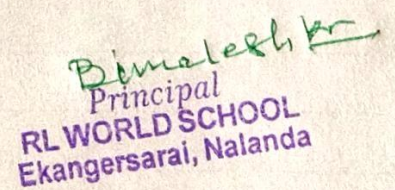 Bimalesh kr
Principal
RL WORLD SCHOOL
Ekangersarai, Nalanda